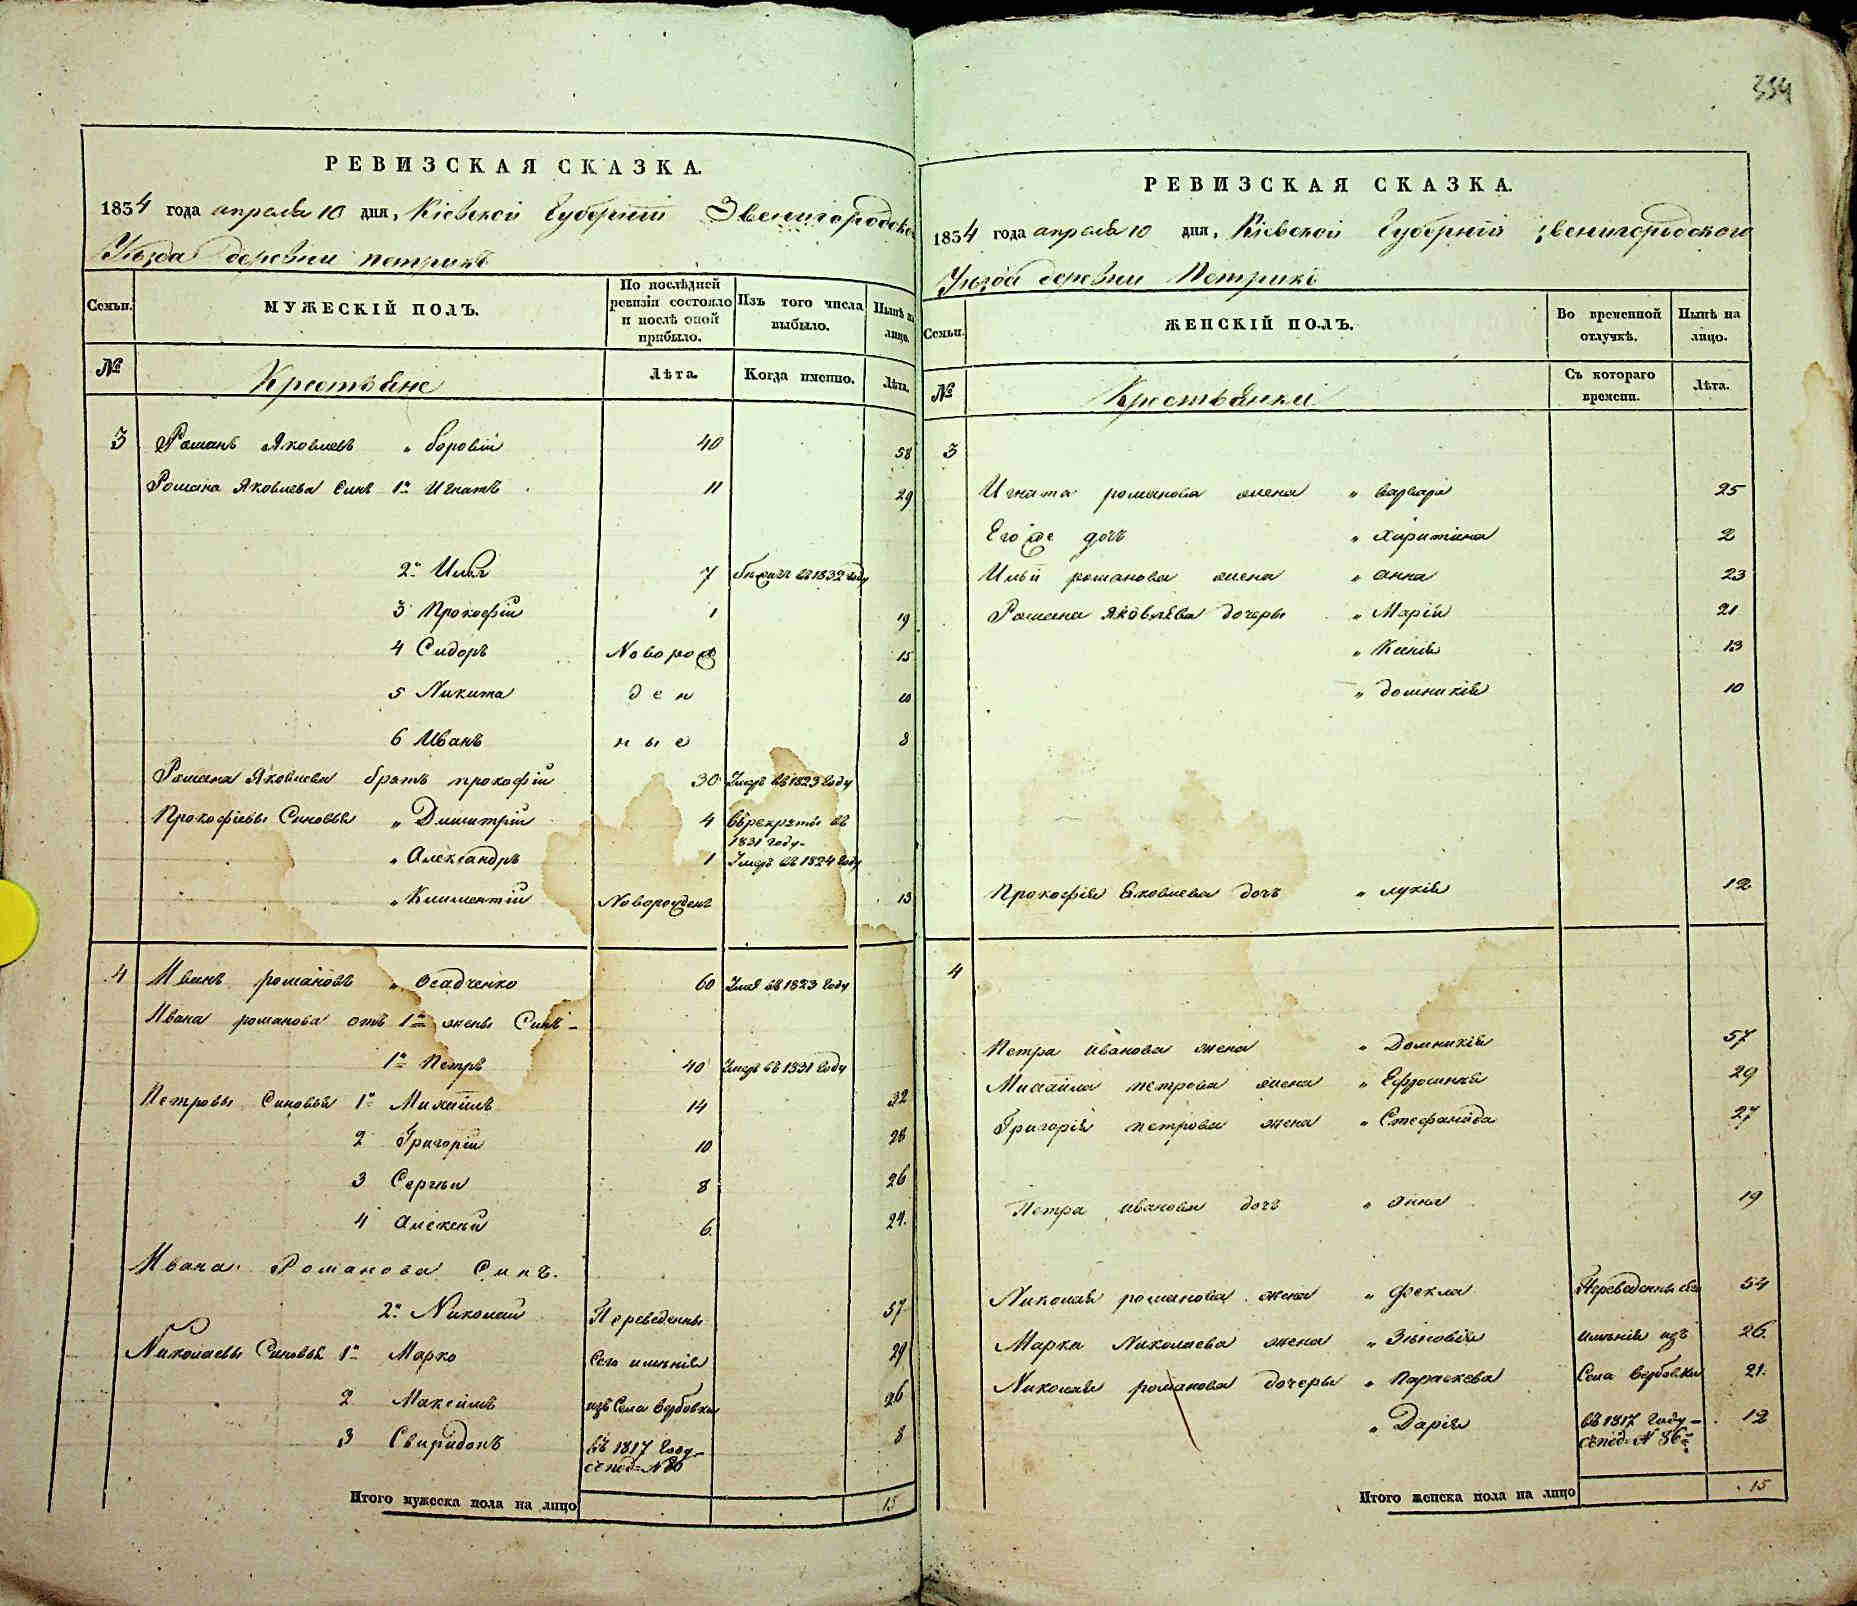 354
РЕВИЗСКАЯ СКАЗКА.
1834 года апреля 10 дня, Кіевской Губерніи Звенигородско
Уезда деревни петрикъ
Семьи. МУЖЕСКІЙ ПОЛЪ. По послѣдней ревизіи состояло и послѣ оной прибыло. Изъ того числа выбыло. Нынѣ на лицо.
№ Крестьяне Лѣта. Когда именно. Лѣта.
3 Романъ Яковлевъ „ боровій 40 58
Романа Яковлева Синъ 1й Игнатъ 11 29
2й Илья 7 въ 1832 году
3 Прокофій 1 19
4 Сидоръ Новорож 15
5 Никита ден 10
6 Иванъ ные 8
Романа Яковлева братъ прокофій 30 Умеръ въ 1823 году
Прокофіевы Синовья „ Димитрій 4 въ рекруты въ
1831 году
„ Александръ 1 Умеръ въ 1824 году
„ Климентій Новорожденъ 13
4 Иванъ романовъ „ Осадченко 60 въ 1823 году
Ивана романова отъ 1й жены Синъ
1й Петръ 40 Умеръ въ 1831 году
Петровы Синовья 1й Михаилъ 14 32
2 Григорій 10 28
3 Сергѣй 8 26
4 Алексѣй 6 24.
Ивана Романова Синъ.
2й Николай Переведенны 57
Николаевы Синовья 1й Марко Сего имѣнія 29
2 Максимъ изъ Села Вербовки 26
3 Свиридонъ въ 1817 году 8
съ под № 86
Итого мужеска пола на лицо 15
РЕВИЗСКАЯ СКАЗКА.
1834 года апреля 10 дня, Кіевской Губерніи Звенигородского
Уезда деревни Петрикі
Семьи. ЖЕНСКІЙ ПОЛЪ. Во временной отлучкѣ. Нынѣ на лицо.
№ Крестьянки Съ котораго времени. Лѣта.
3
Игната романова жена „ варвара 25
Его же дочъ „ харитина 2
Ильи романова жена „ анна 23
Романа Яковлева дочеры „ Марія 21
„ Ксенія 13
„ домникія 10
Прокофія Яковлева дочъ „ лукія 12
4
Петра иванова жена „ Домникія 57
Михайла петрова жена „ Ефросинья 29
Григорія петрова жена „ Стефанида 27
Петра иванова дочъ „ анна 19
Николая романова жена „ фекла Переведенны сего 54
Марка Николаева жена „ Зѣновія имѣнія изъ 26.
Николая романова дочеры „ Параскева Села Вербовки 21.
„ Дарія въ 1817 году 12
съ под № 86
Итого женска пола на лицо 15